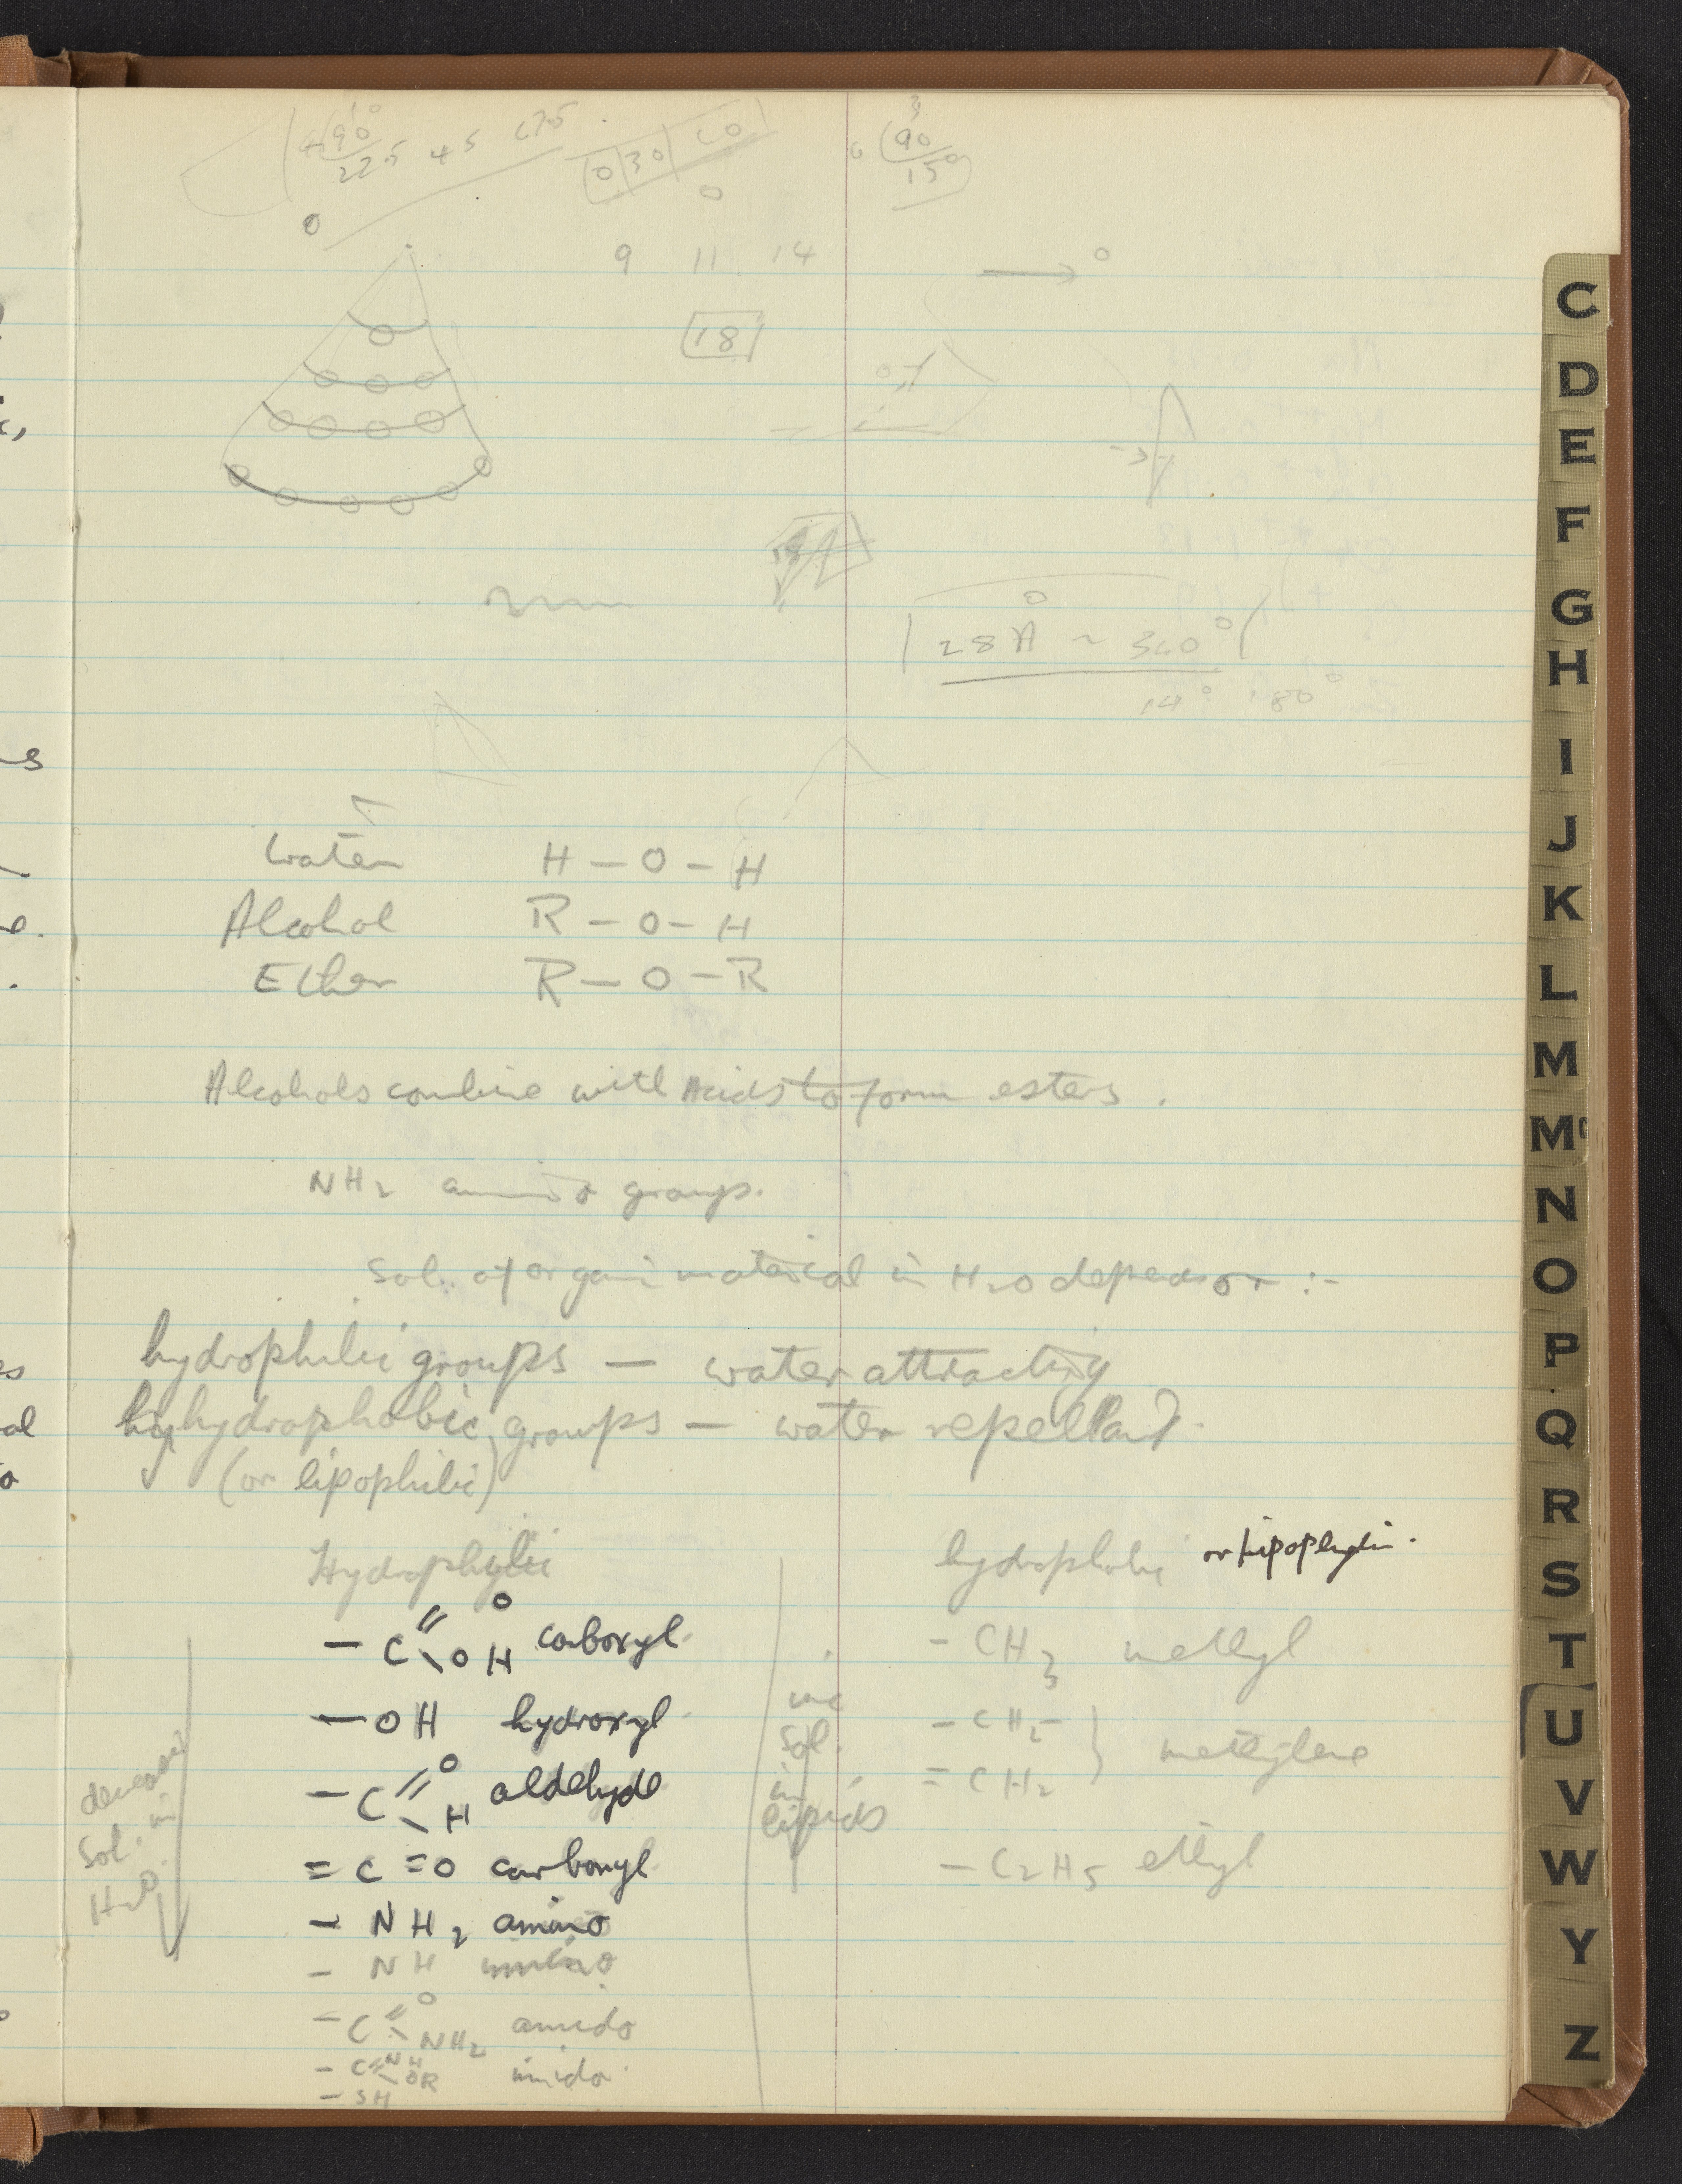 4 90°
22.5 45 67.5
0 30 60
6 90
15°
9 11 14
18
28 Å ~ 360°
14° 180°
Water H – O – H
Alcohol R – O – H
Ether R – O – R
Alcohols combine with Acids to form esters.
NH2 amino group.
Sol. of organic material in H2O depends on :-
hydrophilic groups — water attracting
hydrophobic groups — water repellant
(or lipophilic)
Hydrophylic
hydrophobic or lipophylic.
– C =O \OH carboxyl.
– OH hydroxyl.
– C =O \H aldehyde
= C = O carbonyl.
– NH2 amino
– NH imino
– C =O \NH2 amido
– C =NH \OR imido
– SH
decreases
Sol. in
H2O.
inc
Sol.
in
lipids
– CH3 methyl
– CH2 –
= CH2 } methylene
– C2H5 ethyl
C
D
E
F
G
H
I
J
K
L
M
Mc
N
O
P
Q
R
S
T
U
V
W
Y
Z